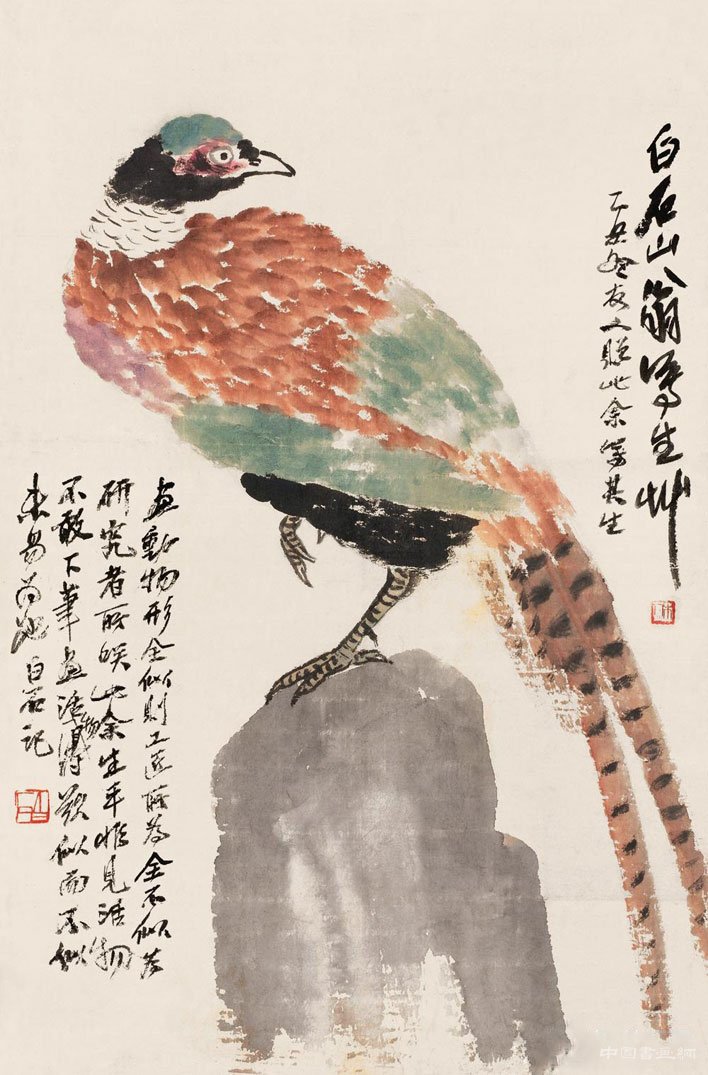 白石山翁寫生艸
丑冬友人贈此余寫其生
畫動物形全似則工匠所為全不似為
研究者所此余生平惟見活物
不敢下筆畫活物得欲似而不似
未易為也白石記
中国書画網